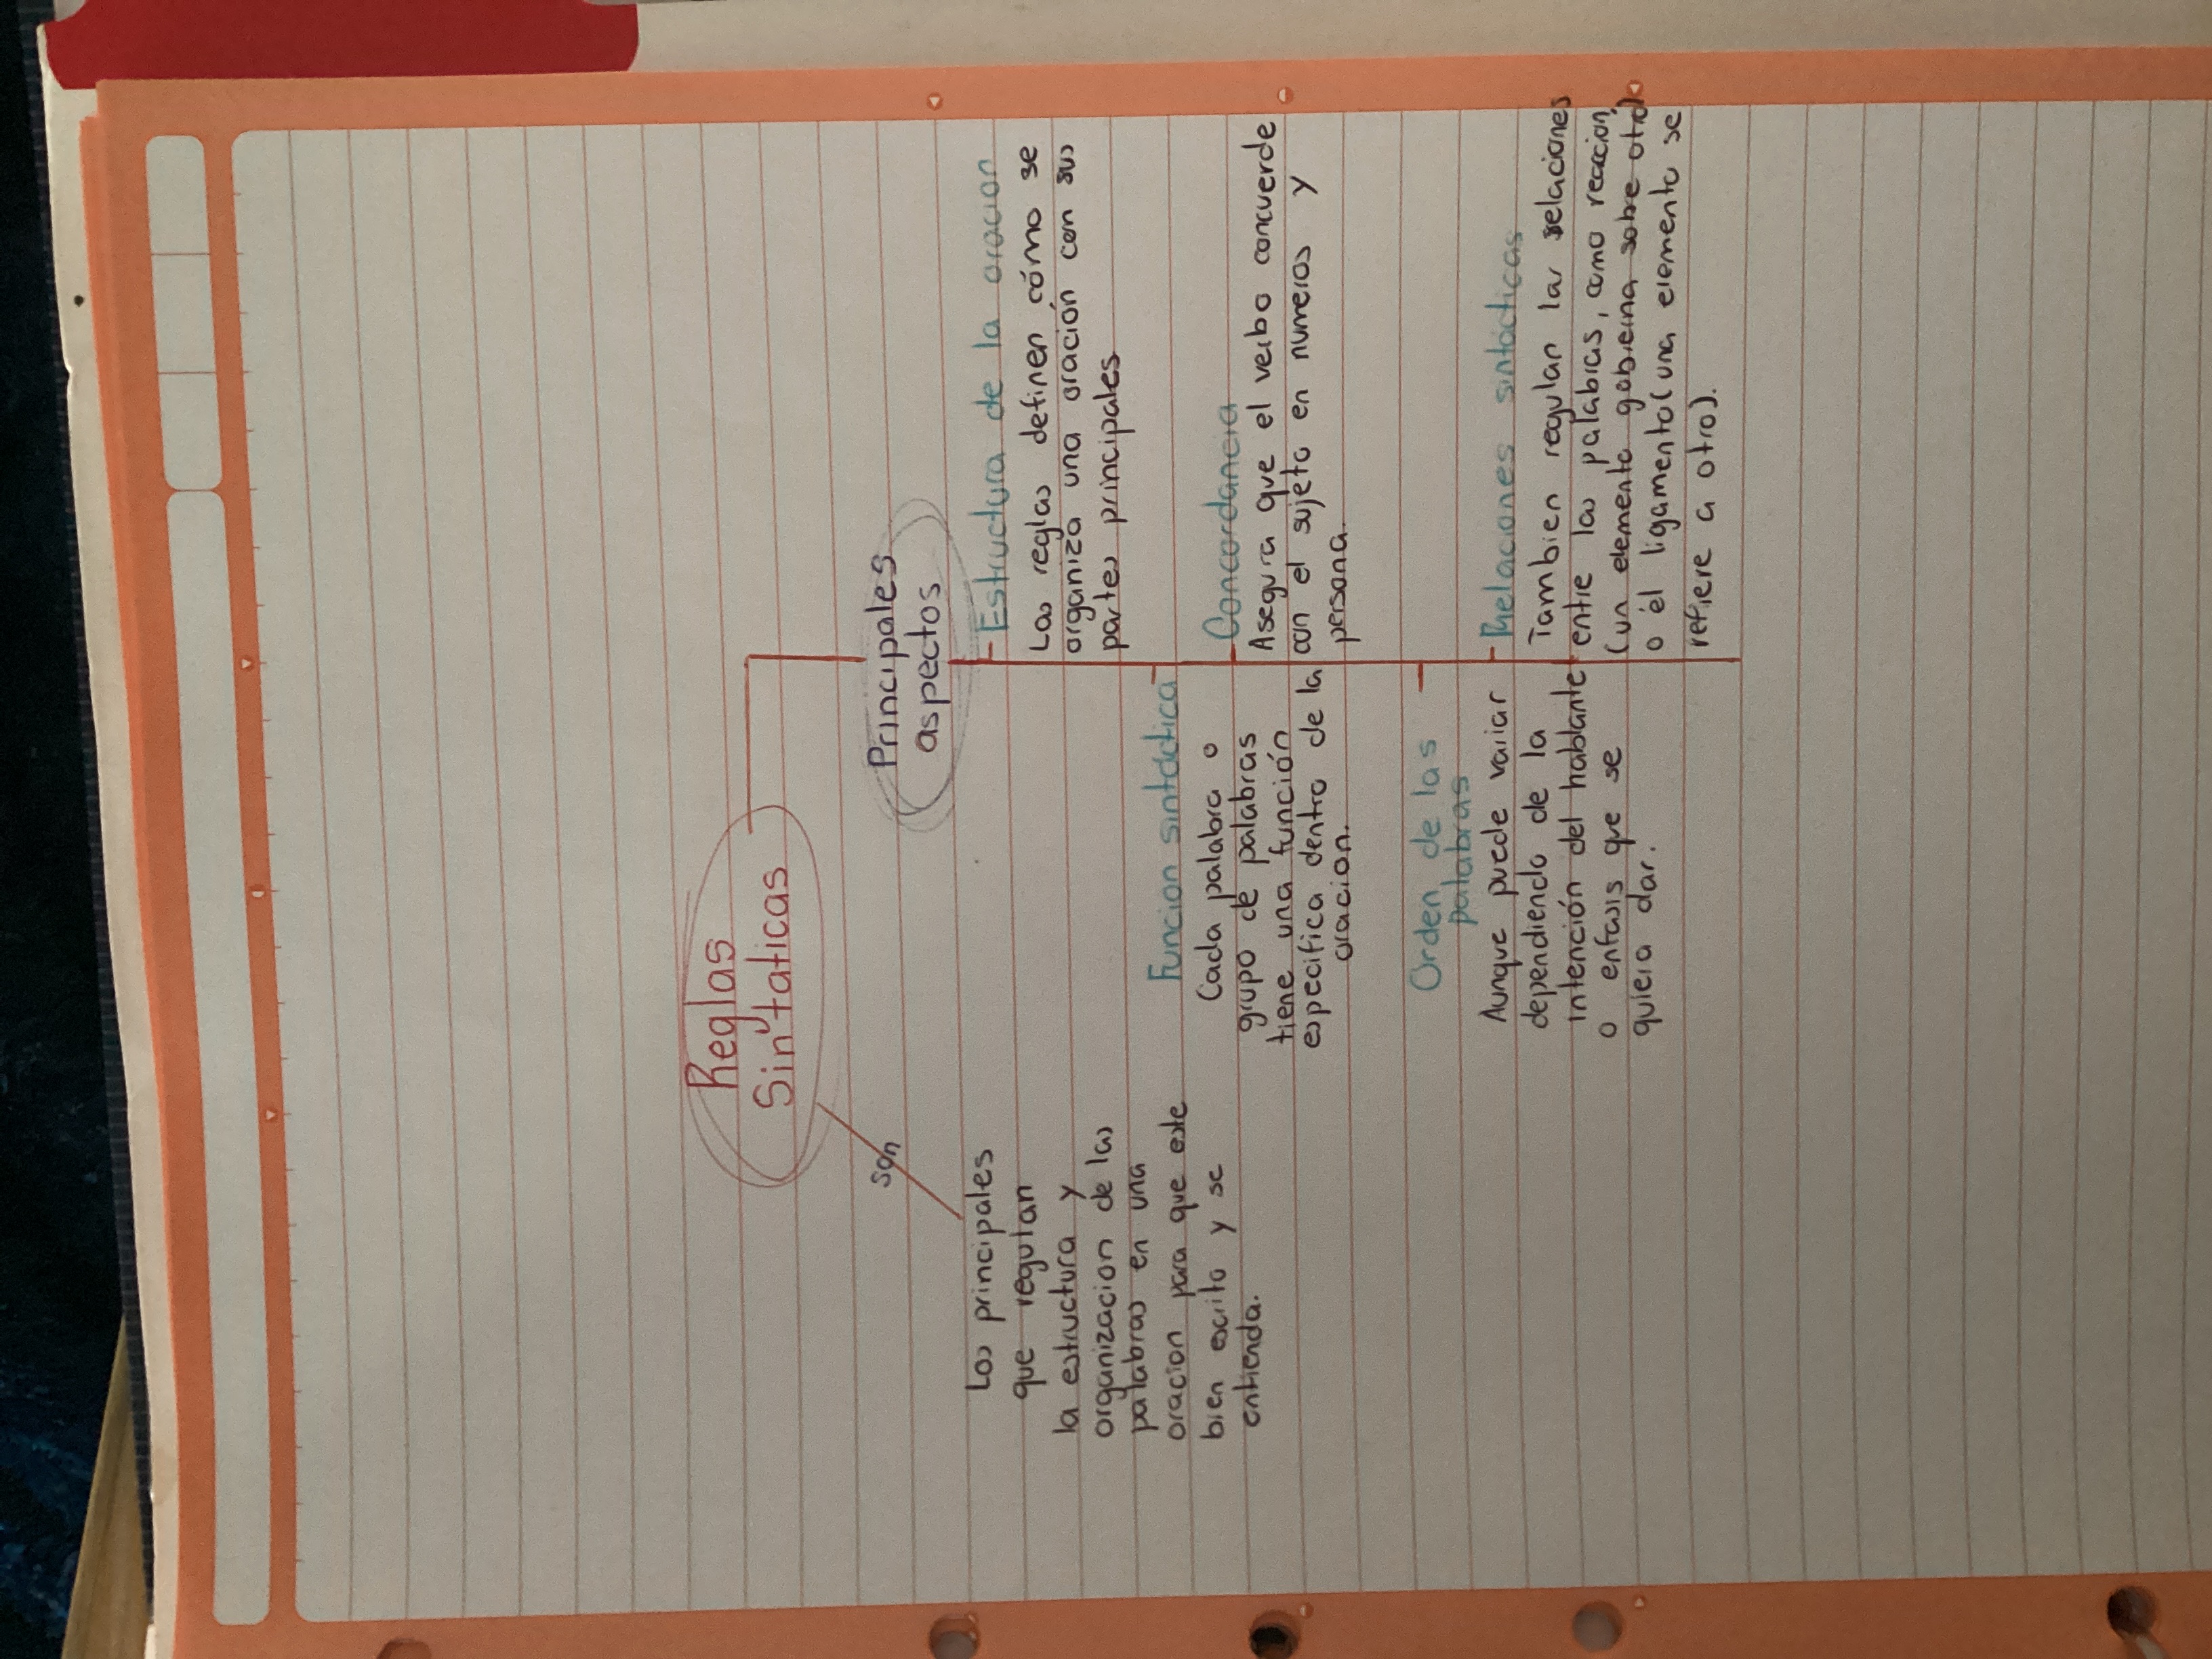 Reglas
Sintaticas
son
Las principales
que regulan
la estructura y
organizacion de las
palabras en una
oracion para que este
bien escrito y se
entienda.
Principales
aspectos
Estructura de la oracion
Las reglas definen cómo se
organiza una oración con sus
partes principales
Funcion sintactica
Cada palabra o
grupo de palabras
tiene una función
especifica dentro de la
oracion.
Concordancia
Asegura que el verbo concuerde
con el sujeto en numeros y
persona.
Orden de las
palabras
Aunque puede variar
dependiendo de la
intención del hablante
o enfasis que se
quiera dar.
Relaciones sintácticas
Tambien regulan las relaciones
entre las palabras, como reaccion
(un elemento gobierna sobre otro)
o él ligamento(una elemento se
refiere a otro).